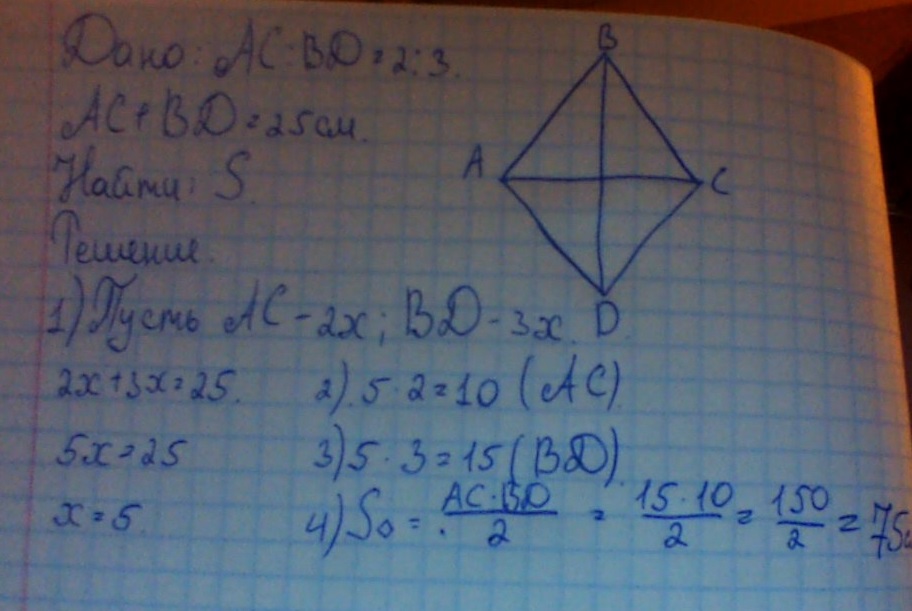 Дано: AC:BD=2:3.
AC+BD=25см.
Найти: S.
Решение.
1) Пусть AC-2x; BD-3x.
2x+3x=25.
5x=25
x=5.
2) 5·2=10 (AC)
3) 5·3=15 (BD)
4) S◊ = AC·BD/2 = 15·10/2 = 150/2 = 75
B
A
C
D